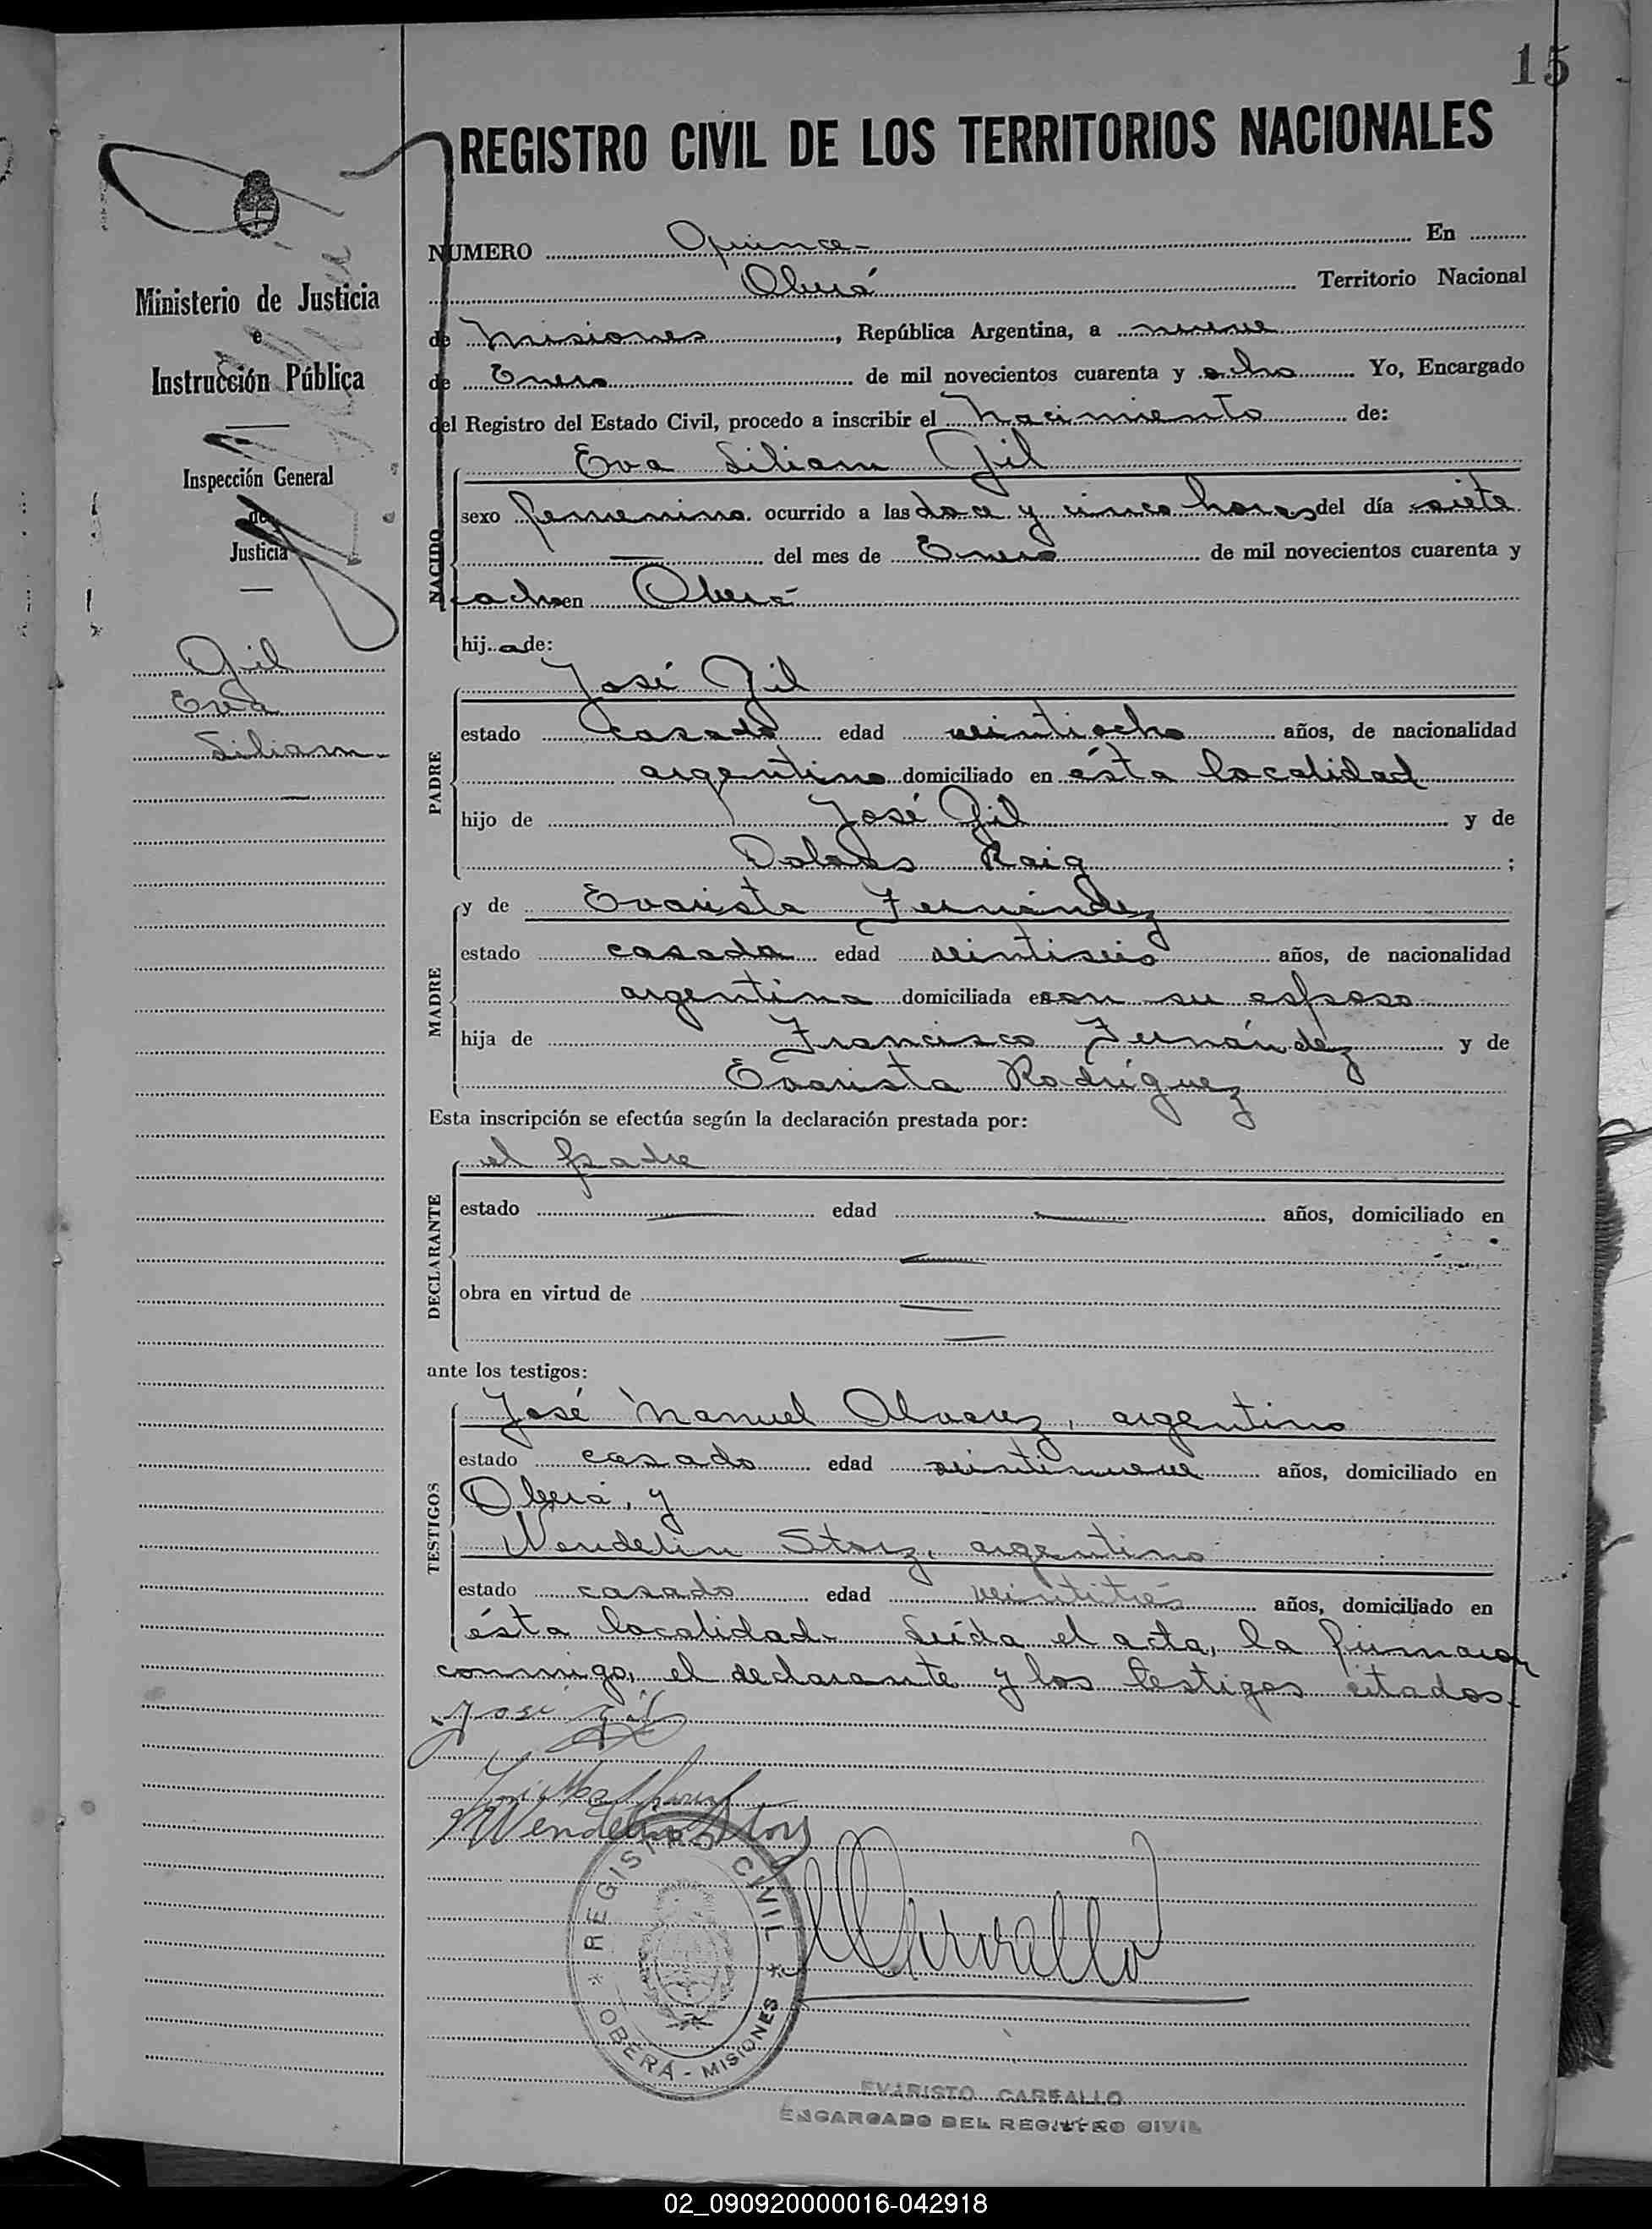 15
REGISTRO CIVIL DE LOS TERRITORIOS NACIONALES
Ministerio de Justicia
e
Instrucción Pública
Inspección General
de
Justicia
Gil
Eva
Liliam.-
NUMERO Quince- En
Oberá Territorio Nacional
de Misiones, República Argentina, a nueve
de Enero de mil novecientos cuarenta y ocho Yo, Encargado
del Registro del Estado Civil, procedo a inscribir el Nacimiento de:
NACIDO
Eva Liliam Gil
sexo femenino ocurrido a las doce y cinco horas del día siete
— del mes de Enero de mil novecientos cuarenta y
ocho en Oberá
hij a de:
PADRE
José Gil
estado casado edad veintiocho años, de nacionalidad
argentino domiciliado en ésta localidad
hijo de José Gil y de
Dolores Roig ;
MADRE
y de Evarista Fernández
estado casada edad veintiseis años, de nacionalidad
argentina domiciliada con su esposo
hija de Francisco Fernández y de
Evarista Rodríguez
Esta inscripción se efectúa según la declaración prestada por:
DECLARANTE
el padre
estado — edad — años, domiciliado en
—
obra en virtud de —
—
ante los testigos:
TESTIGOS
José Manuel Alvarez, argentino
estado casado edad veintinueve años, domiciliado en
Oberá, y
Wendelin Storz, argentino
estado casado edad veintitrés años, domiciliado en
ésta localidad.- Leída el acta, la firmaron
conmigo, el declarante y los testigos citados.-
José Gil
Wendelin Storz
REGISTRO CIVIL
* OBERÁ - MISIONES *
EVARISTO CARBALLO
ENCARGADO DEL REGISTRO CIVIL
02_090920000016-042918